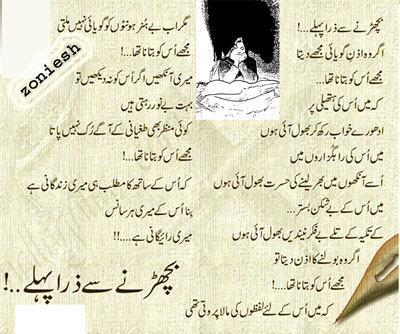 بچھڑنے سے ذرا پہلے...!
اگر وہ اذنِ گویائی مجھے دیتا
مجھے اُس کو بتانا تھا...
کہ میں اُس کی ہتھیلی پر
ادھورے خواب رکھ کر بھول آئی ہوں
میں اُس کی راہگزاروں میں
اُسے آنکھوں میں بھر لینے کی حسرت بھول آئی ہوں
میں اُس کے بے شکن بستر...
کے تکیہ کے تلے بے فکر نیندیں بھول آئی ہوں
اگر وہ بولنے کا اذن دیتا تو
مجھے اُس کو بتانا تھا..!
کہ میں اُس کے لئے لفظوں کی مالا پروتی تھی
مگر اب بے ہنر ہونٹوں کو گویائی نہیں ملتی
مجھے اُس کو بتانا تھا...!
میری آنکھیں اگر اُس کو نہ دیکھیں تو
بہت بے نور رہتی ہیں
کوئی منظر بھی طغیانی کے آگے رُک نہیں پاتا
مجھے اُس کو بتانا تھا...!
کہ اُس کے ساتھ کا مطلب ہی میری زندگانی ہے
بنا اُس کے میری ہر سانس
میری رائیگانی ہے....!!
بچھڑنے سے ذرا پہلے ..!
zoniesh